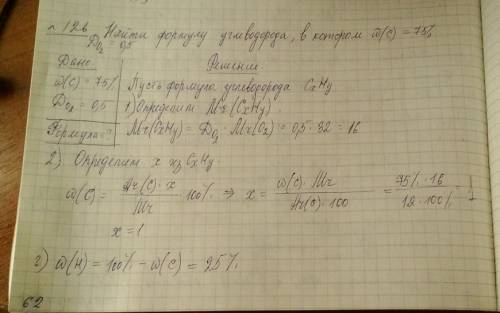 п 12в Найти формулу углеводорода, в котором ω(C) = 75%
D_O₂ = 0,5
Дано Решение
ω(C) = 75% Пусть формула углеводорода CxHy
D_O₂ = 0,5 1) Определит Mr(CxHy)
Формула - ? Mr(CxHy) = D_O₂ · Mr(O₂) = 0,5 · 32 = 16
2) Определяем x из CxHy
ω(C) = Ar(C) · x / Mr · 100% ⇒ x = ω(C) · Mr / Ar(C) · 100 = 75% · 16 / 12 · 100% = 1
x = 1
2) ω(H) = 100% - ω(C) = 25%
62